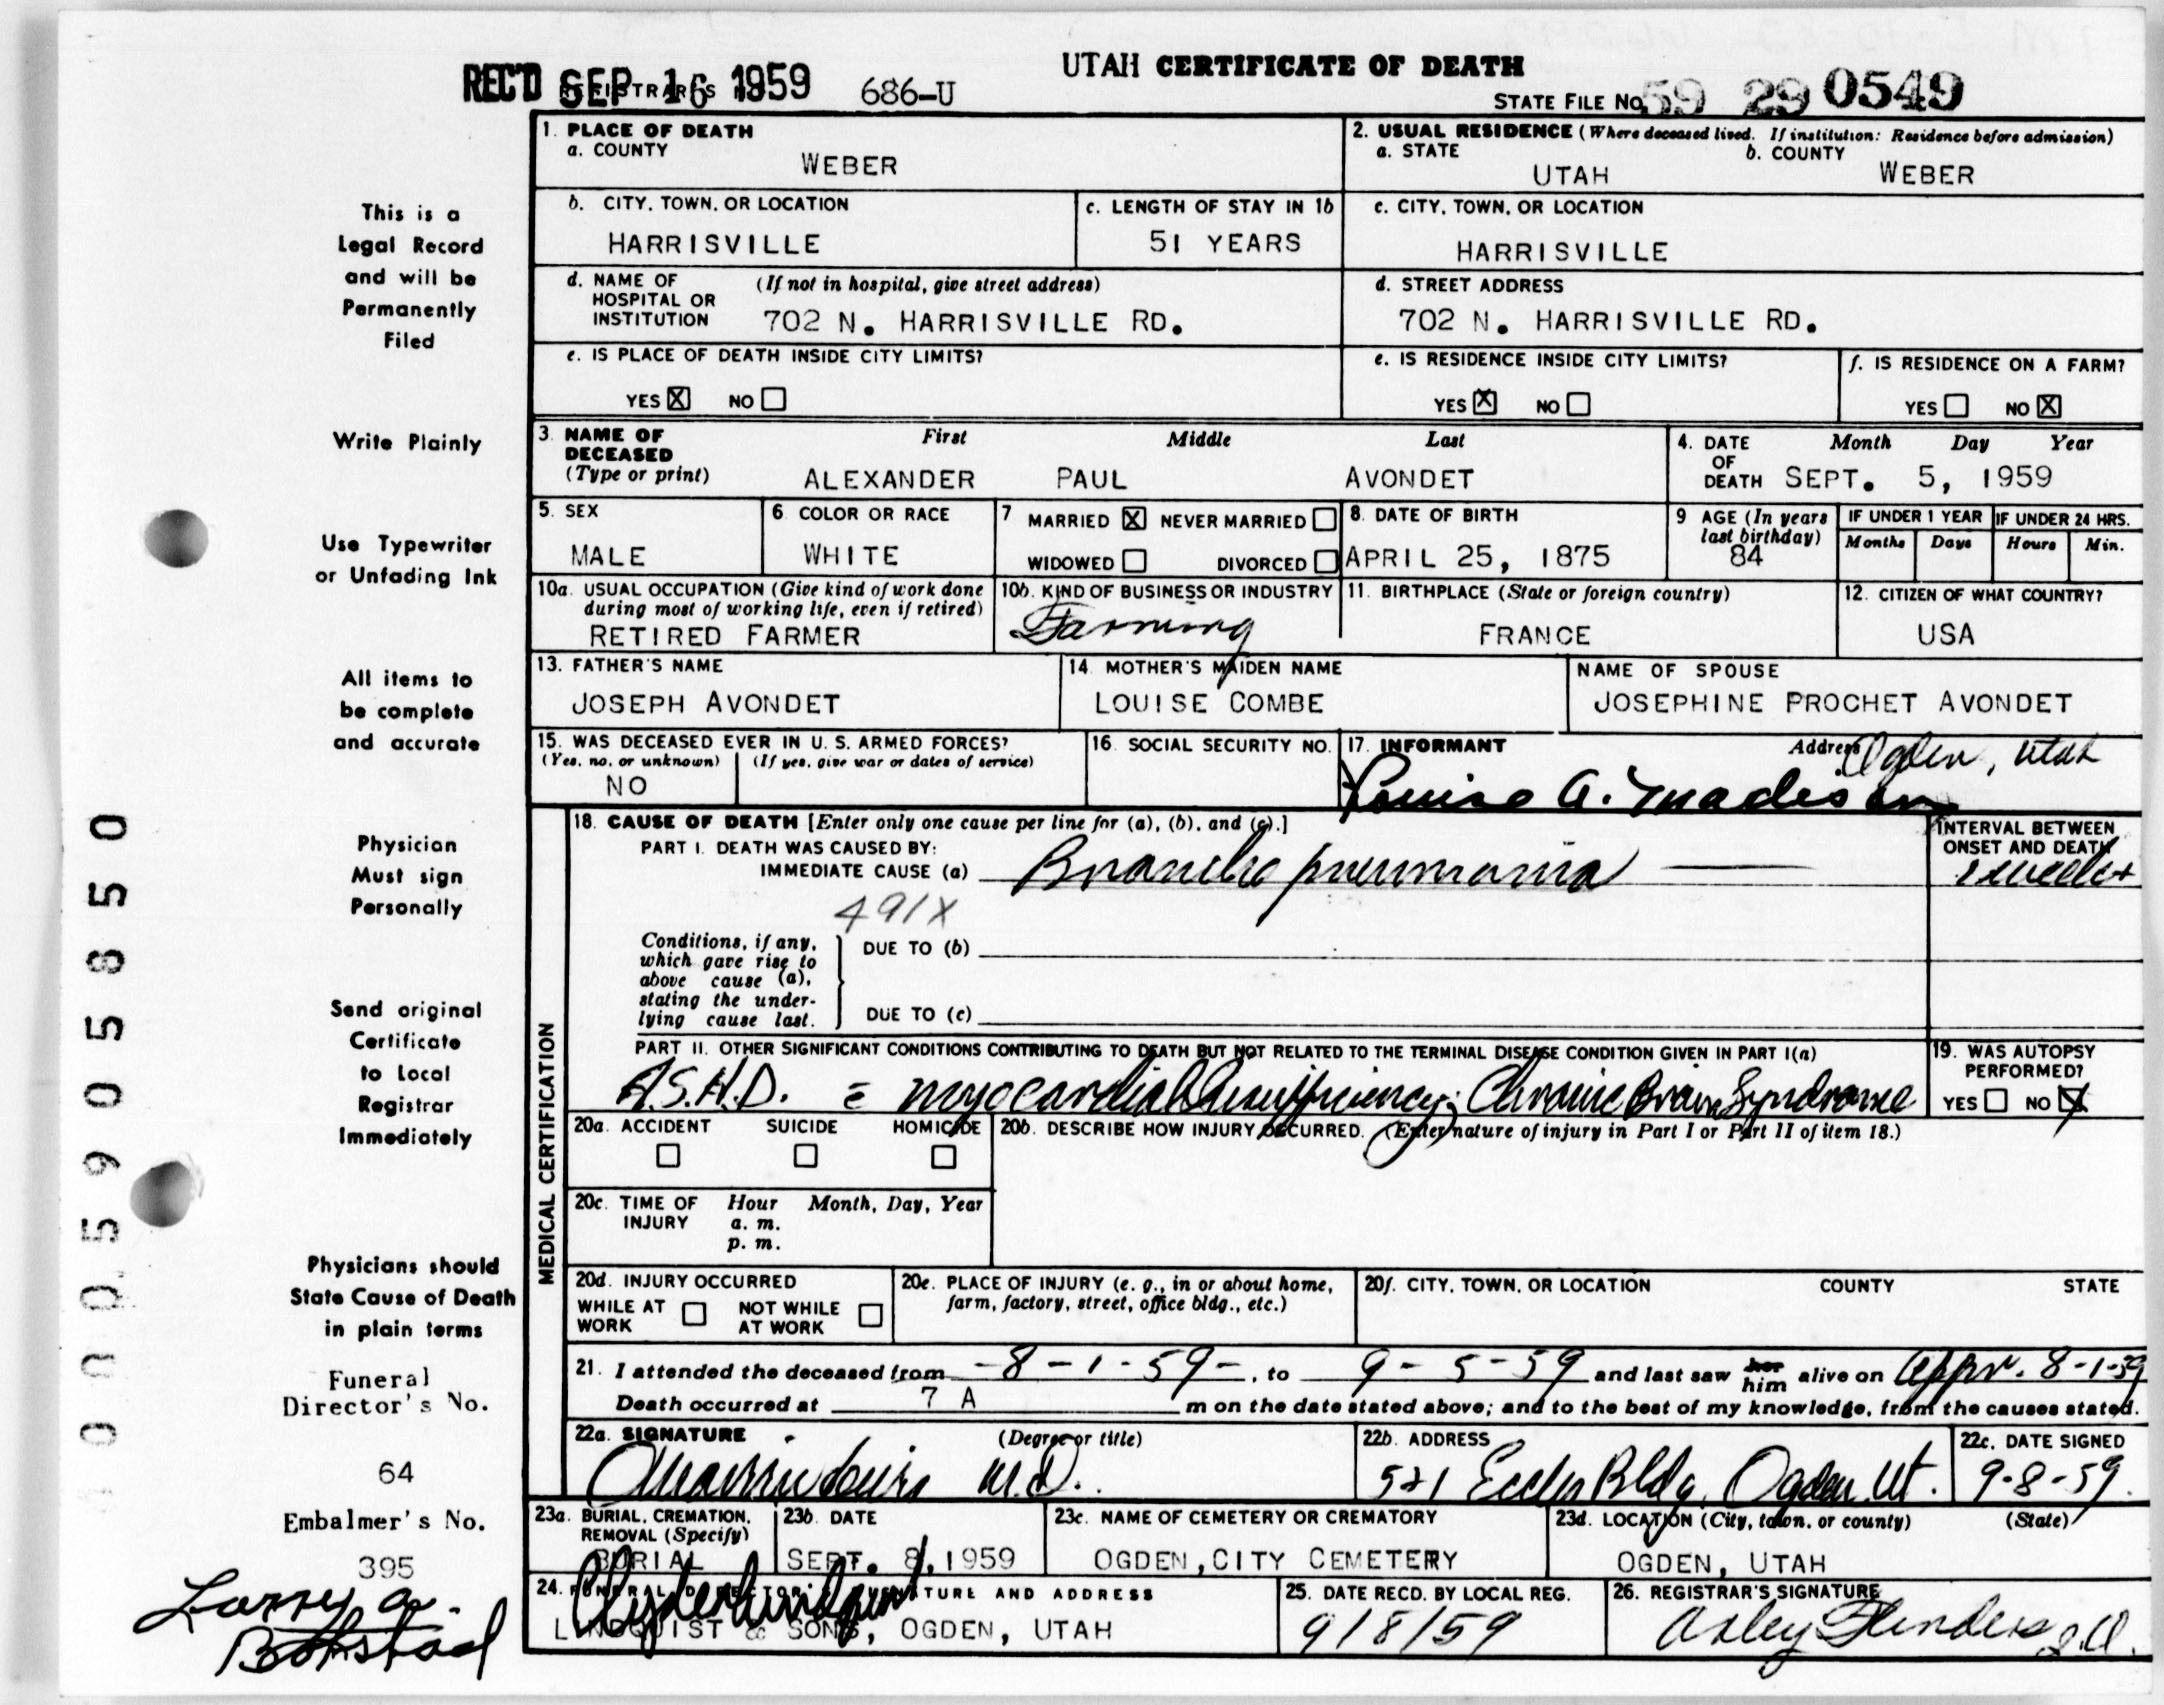 UTAH CERTIFICATE OF DEATH
REC'D SEP 16 1959 686-U
STATE FILE NO. 59 29 0549
1. PLACE OF DEATH
a. COUNTY
WEBER
2. USUAL RESIDENCE (Where deceased lived. If institution: Residence before admission)
a. STATE b. COUNTY
UTAH WEBER
b. CITY, TOWN, OR LOCATION
HARRISVILLE
c. LENGTH OF STAY IN 1b
51 YEARS
c. CITY, TOWN, OR LOCATION
HARRISVILLE
d. NAME OF HOSPITAL OR INSTITUTION (If not in hospital, give street address)
702 N. HARRISVILLE RD.
d. STREET ADDRESS
702 N. HARRISVILLE RD.
e. IS PLACE OF DEATH INSIDE CITY LIMITS?
YES X NO
e. IS RESIDENCE INSIDE CITY LIMITS?
YES X NO
f. IS RESIDENCE ON A FARM?
YES NO X
3. NAME OF DECEASED (Type or print)
First Middle Last
ALEXANDER PAUL AVONDET
4. DATE OF DEATH
Month Day Year
SEPT. 5, 1959
5. SEX
MALE
6. COLOR OR RACE
WHITE
7 MARRIED X NEVER MARRIED
WIDOWED DIVORCED
8. DATE OF BIRTH
APRIL 25, 1875
9 AGE (In years last birthday)
84
IF UNDER 1 YEAR IF UNDER 24 HRS.
Months Days Hours Min.
10a. USUAL OCCUPATION (Give kind of work done during most of working life, even if retired)
RETIRED FARMER
10b. KIND OF BUSINESS OR INDUSTRY
Farming
11. BIRTHPLACE (State or foreign country)
FRANCE
12. CITIZEN OF WHAT COUNTRY?
USA
13. FATHER'S NAME
JOSEPH AVONDET
14. MOTHER'S MAIDEN NAME
LOUISE COMBE
NAME OF SPOUSE
JOSEPHINE PROCHET AVONDET
15. WAS DECEASED EVER IN U. S. ARMED FORCES?
(Yes, no, or unknown) (If yes, give war or dates of service)
NO
16. SOCIAL SECURITY NO.
17. INFORMANT Address
Ogden, Utah
Louise A. Madison
MEDICAL CERTIFICATION
18. CAUSE OF DEATH [Enter only one cause per line for (a), (b), and (c).]
PART I. DEATH WAS CAUSED BY:
IMMEDIATE CAUSE (a) Broncho pneumonia
INTERVAL BETWEEN ONSET AND DEATH
491X
Conditions, if any, which gave rise to above cause (a), stating the underlying cause last.
DUE TO (b)
DUE TO (c)
PART II. OTHER SIGNIFICANT CONDITIONS CONTRIBUTING TO DEATH BUT NOT RELATED TO THE TERMINAL DISEASE CONDITION GIVEN IN PART I(a)
A.S.H.D. c myocardial Insufficiency; Chronic Brain Syndrome
19. WAS AUTOPSY PERFORMED?
YES NO X
20a. ACCIDENT SUICIDE HOMICIDE
20b. DESCRIBE HOW INJURY OCCURRED. (Enter nature of injury in Part I or Part II of item 18.)
20c. TIME OF INJURY Hour Month, Day, Year
a. m.
p. m.
20d. INJURY OCCURRED
WHILE AT WORK NOT WHILE AT WORK
20e. PLACE OF INJURY (e. g., in or about home, farm, factory, street, office bldg., etc.)
20f. CITY, TOWN, OR LOCATION COUNTY STATE
21. I attended the deceased from 8-1-59, to 9-5-59 and last saw her him alive on appr. 8-1-59
Death occurred at 7 A m on the date stated above; and to the best of my knowledge, from the causes stated.
22a. SIGNATURE (Degree or title)
M.D.
22b. ADDRESS
521 Eccles Bldg. Ogden Ut.
22c. DATE SIGNED
9-8-59
23a. BURIAL, CREMATION, REMOVAL (Specify)
BURIAL
23b. DATE
SEPT. 8, 1959
23c. NAME OF CEMETERY OR CREMATORY
OGDEN, CITY CEMETERY
23d. LOCATION (City, town, or county) (State)
OGDEN, UTAH
24. FUNERAL DIRECTOR'S SIGNATURE AND ADDRESS
LINDQUIST & SONS, OGDEN, UTAH
25. DATE RECD. BY LOCAL REG.
9/8/59
26. REGISTRAR'S SIGNATURE
This is a
Legal Record
and will be
Permanently
Filed
Write Plainly
Use Typewriter
or Unfading Ink
All items to
be complete
and accurate
Physician
Must sign
Personally
Send original
Certificate
to Local
Registrar
Immediately
Physicians should
State Cause of Death
in plain terms
Funeral
Director's No.
64
Embalmer's No.
395
Larry A.